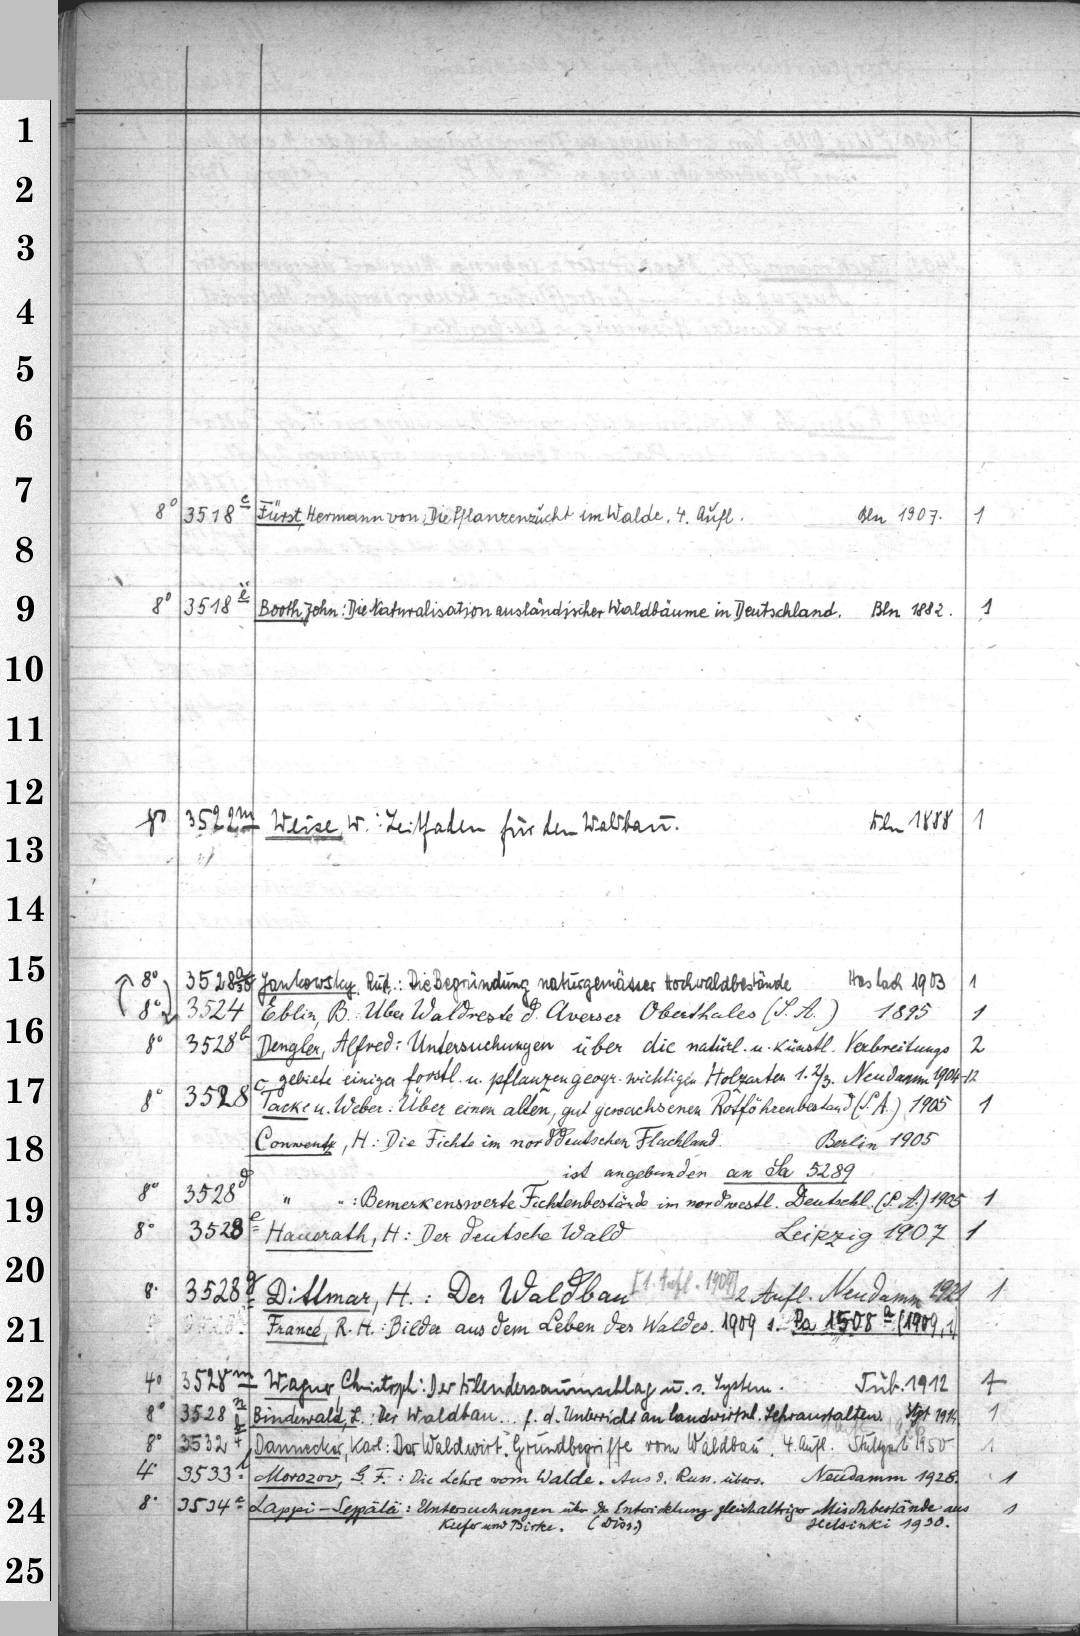 1
2
3
4
5
6
7
8° 3518 e Fürst, Hermann von, Die Pflanzenzucht im Walde. 4. Aufl. Bln 1907. 1
8
9
8° 3518 ë Booth, John: Die Naturalisation ausländischer Waldbäume in Deutschland. Bln 1882. 1
10
11
12
8° 3522m Weise, W.: Leitfaden für den Waldbau. Bln 1888 1
13
14
15
8° 3528a Jankowsky, Rud.: Die Begründung naturgemässer Hochwaldbestände Haslach 1903 1
8° 3524 Eblin, B. Über Waldreste d. Averser Oberthales (S. A.) 1895 1
16
8° 3528b Dengler, Alfred: Untersuchungen über die natürl. u. künstl. Verbreitungs 2
gebiete einiger forstl. u. pflanzengeogr. wichtigen Holzarten 1. 2/3. Neudamm 1904-12
17
8° 3528 c Tacke u. Weber: Über einen alten, gut gewachsenen Rotföhrenbestand (S. A.) 1905 1
Conwentz, H.: Die Fichte im norddeutschen Flachland. Berlin 1905
18
ist angebunden an Sa 5289
8° 3528d " ": Bemerkenswerte Fichtenbestände im nordwestl. Deutschl. (S. A.) 1905 1
19
8° 3528 e Hausrath, H: Der deutsche Wald Leipzig 1907 1
20
8° 3528 g Dittmar, H.: Der Waldbau [1. Aufl. 1909] 2. Aufl. Neudamm 1921 1
21
Francé, R. H.: Bilder aus dem Leben des Waldes. 1909 s. Pa 1508 a (1909,1)
22
4° 3528m Wagner, Christoph: Der Blendersaumschlag u. s. System. Tüb. 1912 1
8° 3528 n Bindewald, L.: Der Waldbau... f. d. Unterricht an landwirtsch. Lehranstalten. Stgt 1914 1
23
8° 3532 f Dannecker, Karl: Der Waldwirt. Grundbegriffe vom Waldbau. 4. Aufl. Stuttgart 1950 1
4° 3533 Morozov, G. F.: Die Lehre vom Walde. Aus d. Russ. übers. Neudamm 1928. 1
24
8° 3534 c Lappi-Seppälä: Untersuchungen über die Entwicklung gleichaltriger Mischbestände aus 1
Kiefer und Birke. (Diss.) Helsinki 1930.
25